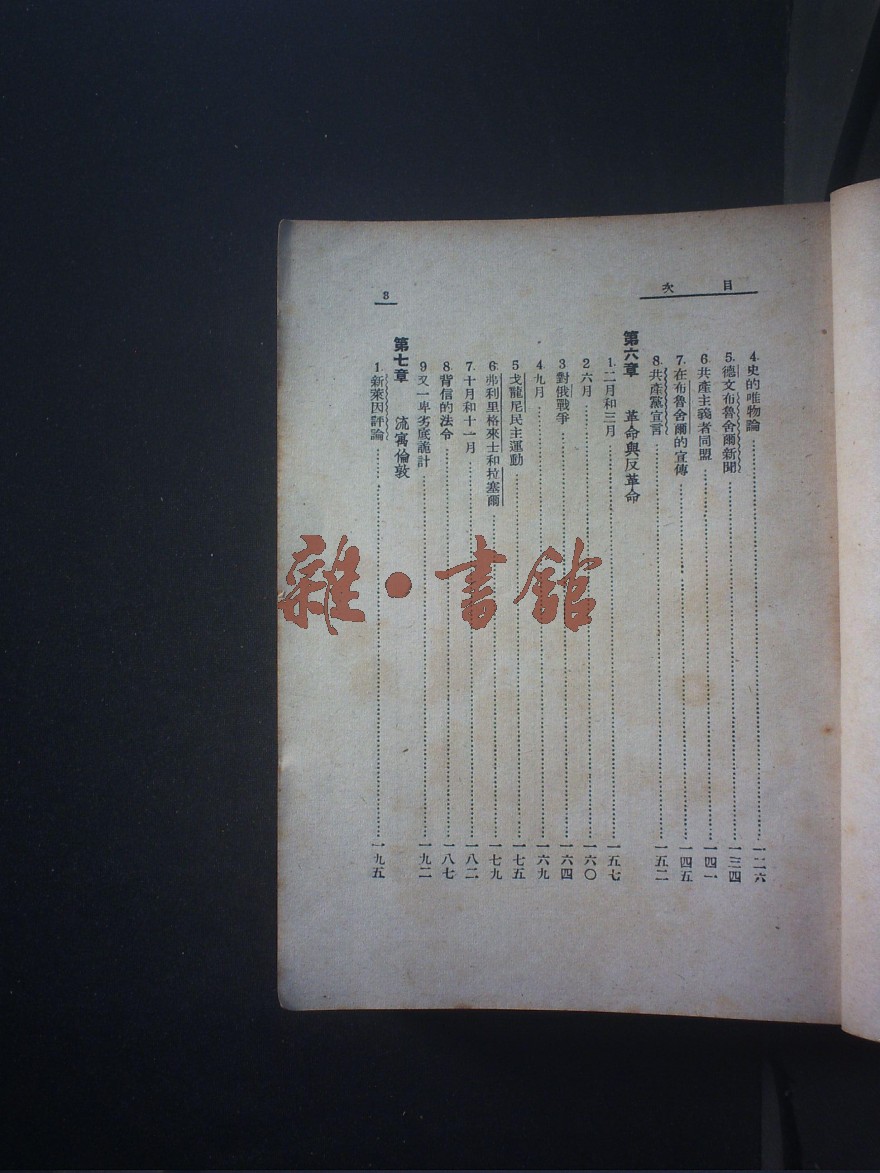 目次
3
4. 史的唯物論 一二六
5. 德文布魯舍爾新聞 一三四
6. 共產主義者同盟 一四一
7. 在布魯舍爾的宣傳 一四五
8. 共產黨宣言 一五二
第六章 革命與反革命
1. 二月和三月 一五七
2 六月 一六〇
3 對俄戰爭 一六四
4. 九月 一六九
5 戈龍尼民主運動 一七五
6. 弗利里格來士和拉塞爾 一七九
7. 十月和十一月 一八二
8. 背信的法令 一八七
9 又一卑劣底詭計 一九二
第七章 流寓倫敦
1. 新萊因評論 一九五
雜·書館